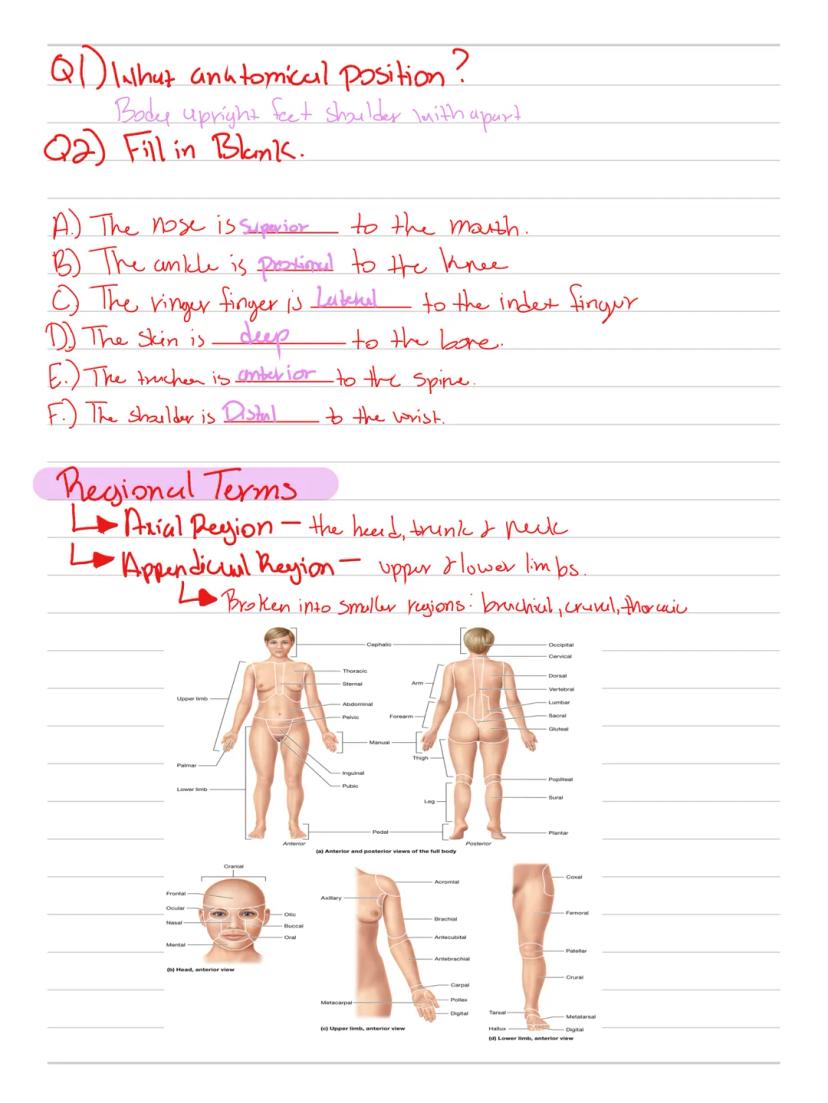 Q1) What anatomical position?
Body upright feet shoulder with apart
Q2) Fill in Blank.
A.) The nose is superior to the mouth.
B) The ankle is proximal to the knee
C) The ringer finger is Lateral to the index finger
D.) The skin is deep to the bone.
E.) The trachea is anterior to the spine.
F.) The shoulder is Distal to the wrist.
Regional Terms
Axial Region – the head, trunk & neck
Appendicual Region – upper & lower limbs.
Broken into smaller regions: brachial, crural, thoracic
Cephalic
Upper limb
Palmar
Lower limb
Thoracic
Sternal
Abdominal
Pelvic
Manual
Inguinal
Pubic
Pedal
Anterior
Arm
Forearm
Thigh
Leg
Occipital
Cervical
Dorsal
Vertebral
Lumbar
Sacral
Gluteal
Popliteal
Sural
Plantar
Posterior
(a) Anterior and posterior views of the full body
Cranial
Frontal
Ocular
Nasal
Mental
Otic
Buccal
Oral
(b) Head, anterior view
Axillary
Acromial
Brachial
Antecubital
Antebrachial
Carpal
Pollex
Digital
Metacarpal
(c) Upper limb, anterior view
Coxal
Femoral
Patellar
Crural
Tarsal
Metatarsal
Hallux
Digital
(d) Lower limb, anterior view